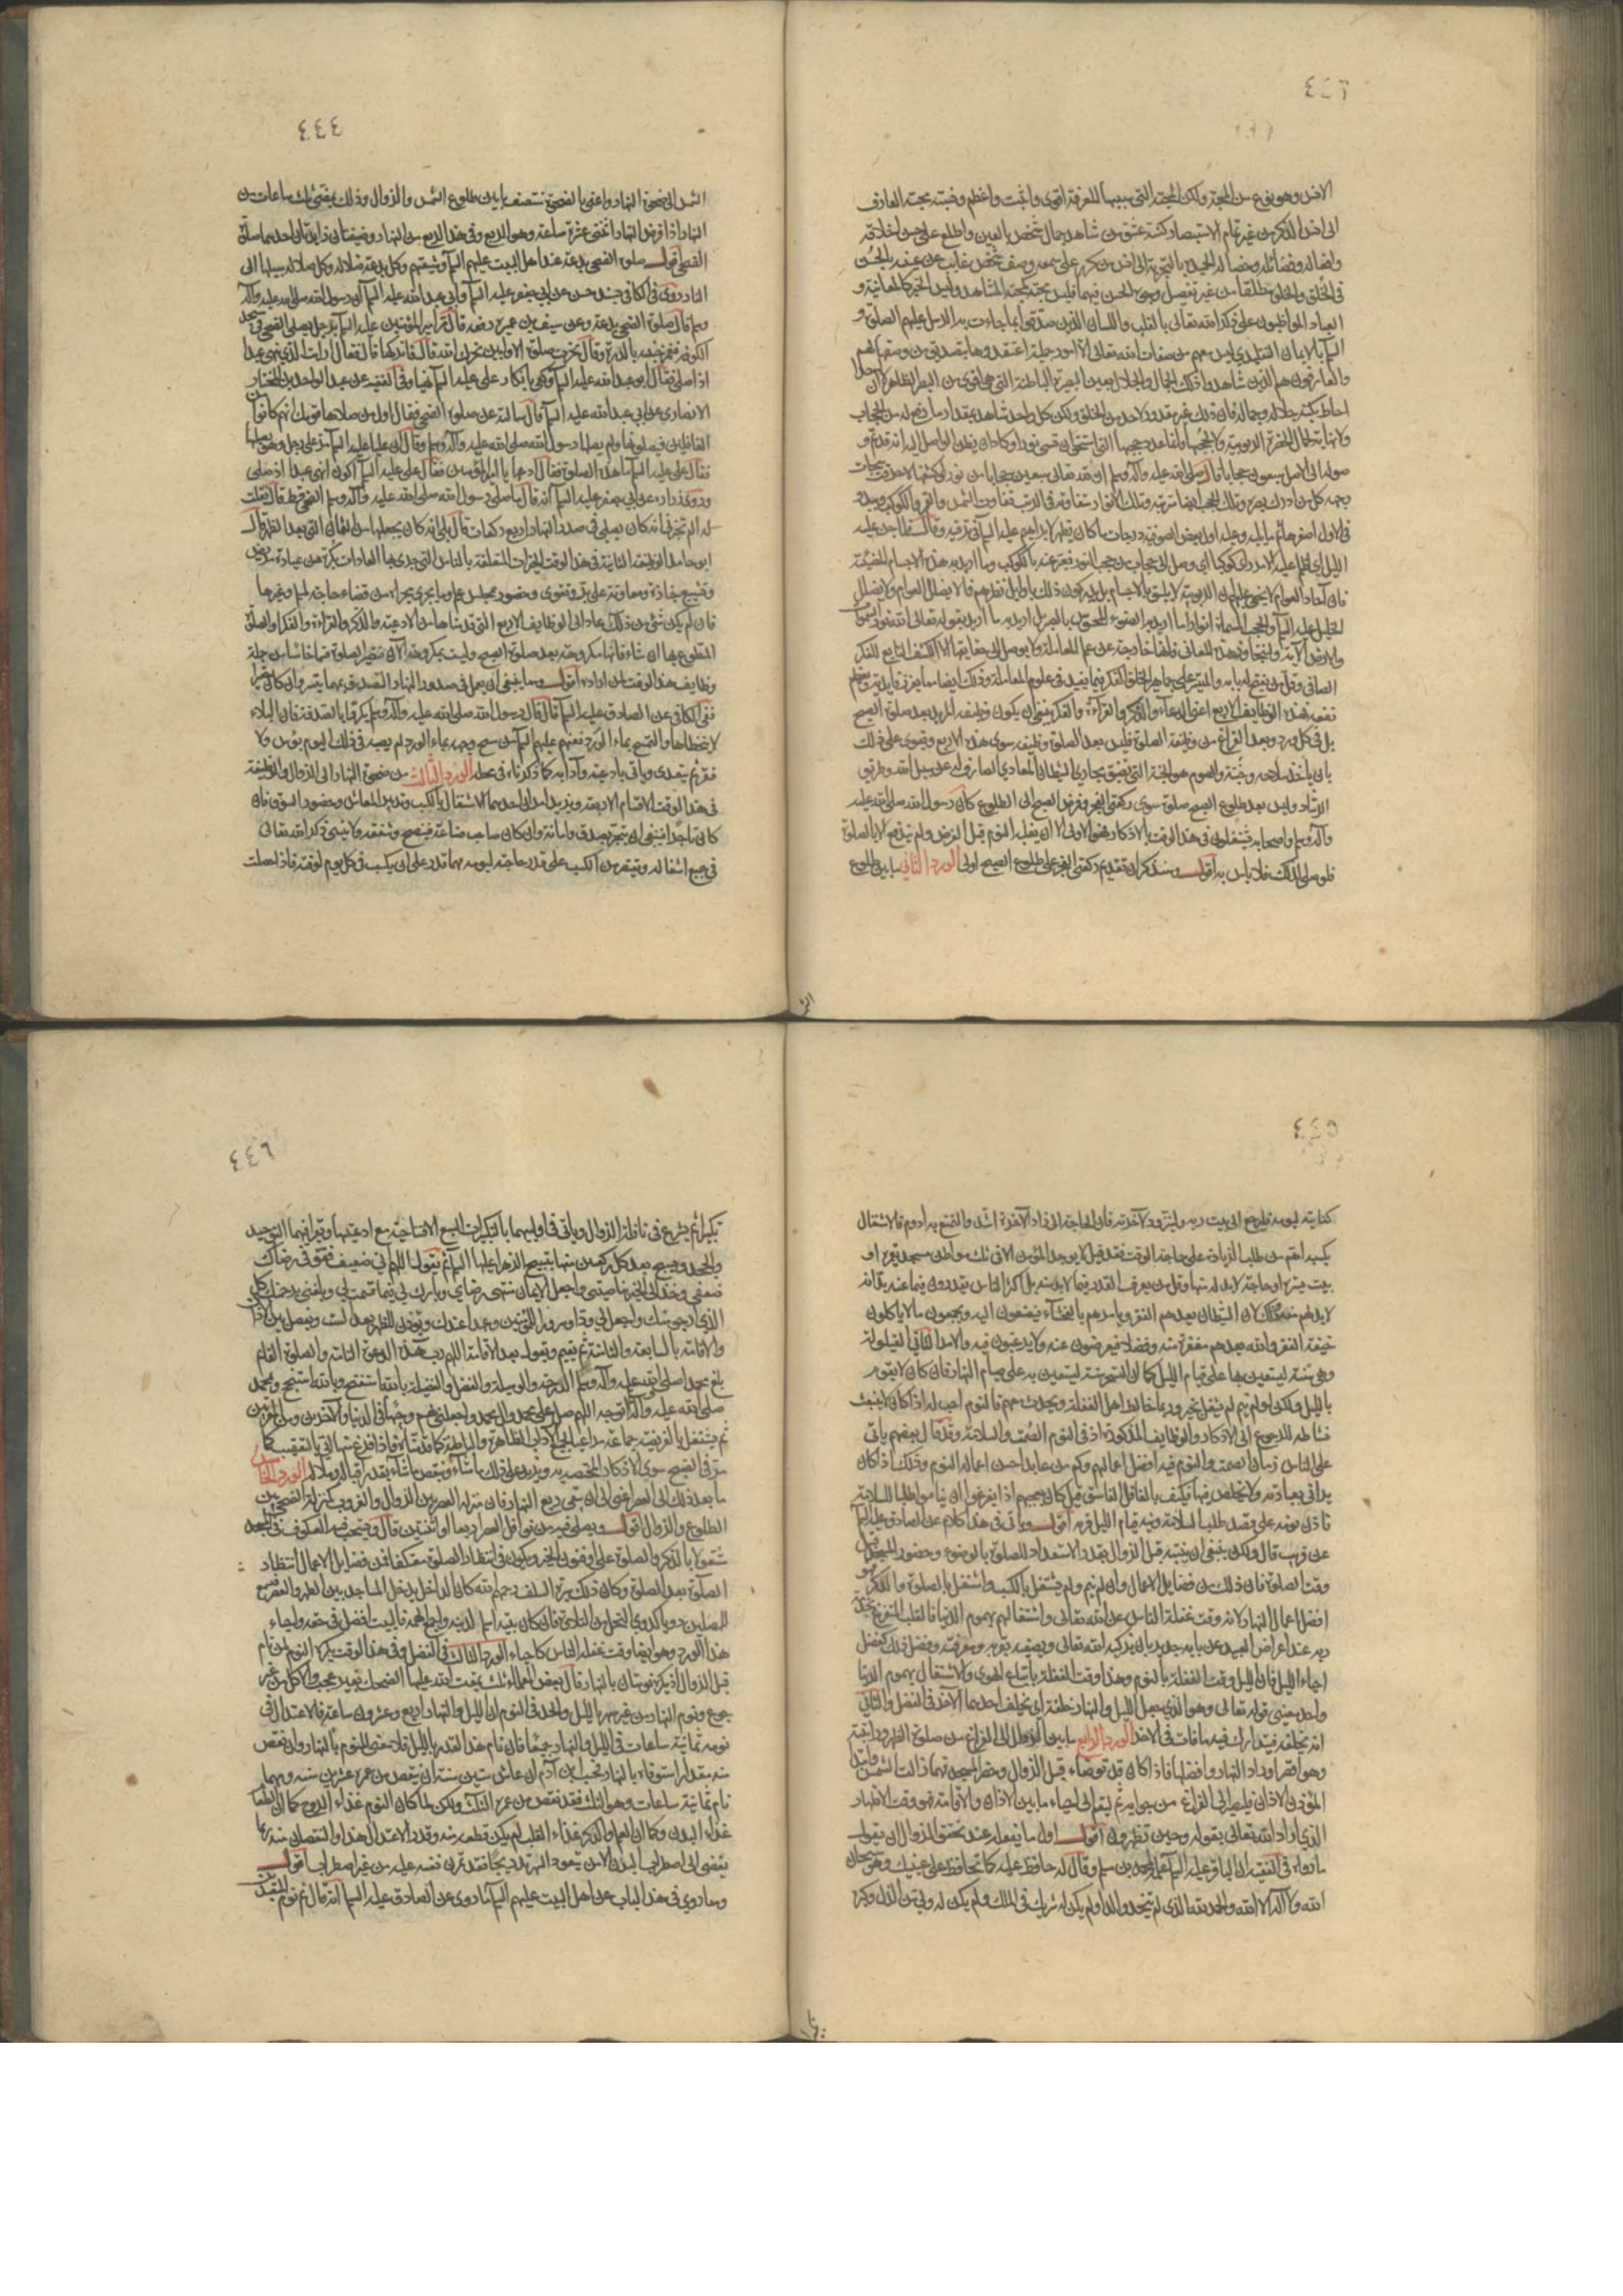 ٤٤٣
الانس وهو نوع من المحبة ولكن المحبة التي سببها المعرفة اقوى واثبت واعظم ونسبة محبة العارف
الى انس الذاكر من غير تمام الاستبصار كنسبة عشق من شاهد جمال شخص بالعين واطلع على حسن اخلاقه
وافعاله وفضائله وخصاله الحميدة بالتجربة الى انس من تكرر على سمعه وصف شخص غائب عن عينه بالحسن
في الخلق والخلق مطلقا من غير تفصيل وجوه الحسن فيهما فليس محبته له كمحبة المشاهد وليس الخبر كالمعاينة و
العباد المواظبون على ذكر الله تعالى بالقلب واللسان الذين صدقوا بما جاءت به الرسل عليهم الصلوة و
السلام بالايمان التقليدي ليس معهم من صفات الله تعالى الا امور جملية اعتقدوها بتصديق من وصفها لهم
والعارفون هم الذين شاهدوا ذلك الجمال والجلال بعين البصيرة الباطنة التي هي اقوى من البصر الظاهر لان احدا
احاط بكنه جلاله وجماله فان ذلك غير مقدور لاحد من الخلق ولكن كل واحد شاهد بقدر ما رفع له من الحجاب
ولا نهاية لجمال الحضرة الربوبية ولا لحجبها وانما عدد حجبها التي استحقت ان تسمى نورا وكاد ان يظن الواصل اليها انه قد تم و
صوله الى الاصل سبعون حجابا قال صلى الله عليه وآله وسلم ان لله تعالى سبعين حجابا من نور لو كشفها لاحرقت سبحات
وجهه كل من ادرك بصره وتلك الحجب ايضا مترتبة وتلك الانوار متفاوتة في الرتب تفاوت الشمس والقمر والكواكب ويبدو
في الاول اصغرها ثم ما يليه وعليه اول بعض الصوفية درجات ما كان يظهر لابراهيم عليه السلام في ترقيه وقال فلما جن عليه
الليل اي اظلم عليه الامر راى كوكبا اي وصل الى حجاب من حجب النور فعبر عنه بالكوكب وما اريد به هذه الاجسام المضيئة
فان آحاد العوام لا يخفى عليهم ان الربوبية لا يليق بالاجسام بل يدركون ذلك باوائل نظرهم فما لا يضلل العوام لا يضلل
الخليل عليه السلام والحجب المسماة انوارا ما اريد به الضوء المحسوس بالبصر بل اريد به ما اريد بقوله تعالى الله نور السموات
والارض الآية ولنتجاوز هذه المعاني فانها خارجة عن علم المعاملة ولا يوصل الى حقايقها الا الكشف التابع للفكر
الصافي وقل من ينفتح له بابه والمتيسر على جماهير الخلق الفكر فيما يفيد في علوم المعاملة وذلك ايضا مما يعزز فايدته ويعظم
نفعه فهذه الوظايف الاربع اعني الدعاء والذكر والقراءة والفكر ينبغي ان يكون وظيفة المريد بعد صلوة الصبح
بل في كل ورد وبعد الفراغ من وظيفة الصلوة فليس بعد الصلوة وظيفة سوى هذه الاربع ويقوى على ذلك
بان ياخذ سلاحه وجنته والصوم هو الجنة التي تضيق مجاري الشيطان المعادي الصارف له عن سبيل الله وطريق
الرشاد وليس بعد طلوع الصبح صلوة سوى ركعتي الفجر وفرض الصبح الى الطلوع كان رسول الله صلى الله عليه
وآله وسلم واصحابه يشتغلون في هذا الوقت بالاذكار وهو الاولى الا ان يغلبه النوم قبل الفرض ولم يندفع الا بالصلوة
فلو صلى لذلك فلا باس به اقول وسنذكر ان تقديم ركعتي الفجر على طلوع الصبح اولى الورد الثاني ما بين طلوع
٤٤٤
الشمس الى ضحوة النهار واعني بالضحوة منتصف ما بين طلوع الشمس والزوال وذلك بمضي ثلث ساعات من
النهار اذا فرض النهار اثنتي عشرة ساعة وهو الربع وفي هذا الربع من النهار وظيفتان زايدتان احدهما صلوة
الضحى اقول صلوة الضحى بدعة عند اهل البيت عليهم السلام وشيعتهم وكل بدعة ضلالة وكل ضلالة سبيلها الى
النار روى في الكافي بسند حسن عن ابي جعفر عليه السلام وابي عبد الله عليه السلام ان رسول الله صلى الله عليه وآله
وسلم قال صلوة الضحى بدعة وعن سيف بن عميرة رفعه قال مر امير المؤمنين عليه السلام برجل يصلي الضحى في مسجد
الكوفة فغمز جنبه بالدرة وقال نحرت صلوة الاوابين نحرك الله قال فاتركها قال فقال ارايت الذي ينهى عبدا
اذا صلى فقال ابو عبد الله عليه السلام وكفى بانكار علي عليه السلام نهيا وفي الفقيه عن عبد الواحد بن المختار
الانصاري عن ابي عبد الله عليه السلام قال سالته عن صلوة الضحى فقال اول من صلاها قومك انهم كانوا من
الغافلين فيصلونها ولم يصلها رسول الله صلى الله عليه وآله وسلم وقال ان عليا عليه السلام مر على رجل وهو يصليها
فقال علي عليه السلام ما هذه الصلوة فقال ادعها يا امير المؤمنين فقال علي عليه السلام اكون انهى عبدا اذا صلى
وروى زرارة عن ابي جعفر عليه السلام انه قال ما صلى رسول الله صلى الله عليه وآله وسلم الضحى قط قال فقلت
له الم تخبرني انه كان يصلي في صدر النهار اربع ركعات قال بلى انه كان يجعلها من الثمان التي بعد الظهر قال
ابو حامد الوظيفة الثانية في هذا الوقت الخيرات المتعلقة بالناس التي جرت بها العادات بكرة من عيادة مريض
وتشييع جنازة ومعاونة على بر وتقوى وحضور مجلس علم وما يجري مجراه من قضاء حاجة لمسلم وغيرها
فان لم يكن شيء من ذلك عاد الى الوظايف الاربع التي قدمناها من الادعية والذكر والقراءة والفكر او الصلوة
المتطوع بها ان شاء فانها مكروهة بعد صلوة الصبح وليست بمكروهة الآن فتصير الصلوة قسما خامسا من جملة
وظايف هذا الوقت لمن اراده اقول ومما ينبغي ان يعمل في صدور النهار التصدق بمهما يتيسر وان كان يسيرا
ففي الكافي عن الصادق عليه السلام قال قال رسول الله صلى الله عليه وآله وسلم بكروا بالصدقة فان البلاء
لا يتخطاها والتمسح بماء الورد فعنهم عليهم السلام من مسح وجهه بماء الورد لم يصبه في ذلك اليوم بؤس ولا
فقر ثم يتغدى وياتي بادعيته وآدابه كما ذكرناه في محله الورد الثالث من ضحوة النهار الى الزوال والوظيفة
في هذا الوقت الاقسام الاربعة ويزيد امران احدهما الاشتغال بالكسب وتدبير المعاش وحضور السوق فان
كان تاجرا فينبغي ان يتجر بصدق وامانة وان كان صاحب صناعة فبنصح وشفقة ولا ينسى ذكر الله تعالى
في جميع اشغاله ويقتصر من الكسب على قدر حاجته ليومه مهما قدر على ان يكسب في كل يوم لقوته فاذا حصلت
٤٤٥
كفاية ليومه فليرجع الى بيت ربه وليتزود لآخرته فان الحاجة الى زاد الآخرة اشد والتمتع به ادوم فالاشتغال
بكسبه اهم من طلب الزيادة على حاجة الوقت فقد قيل لا يوجد المؤمن الا في ثلث مواطن مسجد يعمره او
بيت يستره او حاجة لابد له منها وقل من يعرف القدر فيما لا بد منه بل اكثر الناس يقدرون فيما عنه بد انه
لا بد لهم منه وذلك لان الشيطان يعدهم الفقر ويامرهم بالفحشاء فيصغون اليه ويجمعون ما لا ياكلون
خيفة الفقر والله يعدهم مغفرة منه وفضلا فيعرضون عنه ولا يرغبون فيه والامر الثاني القيلولة
وهي سنة ليستعين بها على قيام الليل كما ان التسحر سنة ليستعين به على صيام النهار فان كان لا يقوم
بالليل ولكن لو لم ينم لم يشتغل بخير وربما خالط اهل الغفلة ويحدث معهم فالنوم احب له اذا كان لا ينبعث
نشاطه للرجوع الى الاذكار والوظايف المذكورة اذ في النوم الصمت والسلامة وقد قال بعضهم ياتي
على الناس زمان الصمت والنوم فيه افضل اعمالهم وكم من عابد احسن احواله النوم وذلك اذا كان
يرائي بعبادته ولا يخلص فيها فكيف بالغافل الفاسق قيل كان يعجبهم اذا تفرغوا ان يناموا طلبا للسلامة
فاذن نومه على قصد طلب السلامة ونية قيام الليل قربة اقول وياتي في هذا كلام عن الصادق عليه السلام
عن قريب قال ولكن ينبغي ان يتنبه قبل الزوال بقدر الاستعداد للصلوة بالوضوء وحضور المسجد قبل
وقت الصلوة فان ذلك من فضايل الاعمال وان لم ينم ولم يشتغل بالكسب واشتغل بالصلوة والذكر فهو
افضل اعمال النهار لانه وقت غفلة الناس عن الله تعالى واشتغالهم بهموم الدنيا فالقلب المتفرغ لخدمة
ربه عند اعراض العبيد عن بابه جدير بان يزكيه الله تعالى ويصطفيه لقربه ومعرفته وفضل ذلك كفضل
احياء الليل فان الليل وقت الغفلة بالنوم وهذا وقت الغفلة باتباع الهوى والاشتغال بهموم الدنيا
واحد معنيي قوله تعالى وهو الذي جعل الليل والنهار خلفة اي يخلف احدهما الآخر في الفضل والثاني
انه يخلفه فيتدارك فيه ما فات في الآخر الورد الرابع ما بين الزوال الى الفراغ من صلوة الظهر وراتبته
وهو اقصر اوراد النهار وافضلها فاذا كان قد توضاء قبل الزوال وحضر المسجد فمهما زالت الشمس وابتدا
المؤذن الاذان فليصبر الى الفراغ من جوابه ثم ليقم الى احياء ما بين الاذان والاقامة فهو وقت الاظهار
الذي اراد الله تعالى بقوله وحين تظهرون اقول اول ما يفعله عند تحقق الزوال ان يقول
ما رواه في الفقيه ان الباقر عليه السلام علمه محمد بن مسلم وقال له حافظ عليه كما تحافظ على عينيك وهو سبحان
الله ولا اله الا الله والحمد لله الذي لم يتخذ ولدا ولم يكن له شريك في الملك ولم يكن له ولي من الذل وكبره
٤٤٦
تكبيرا ثم يشرع في نافلة الزوال وياتي في اوليهما بالتكبيرات السبع الافتتاحية مع ادعيتها ويقرا فيهما التوحيد
والجحد ويسبح بعد كل ركعتين منها بتسبيح الزهراء عليها السلام ثم يقول اللهم اني ضعيف فقو في رضاك
ضعفي وخذ الى الخير بناصيتي واجعل الايمان منتهى رضاي وبارك لي فيما قسمت لي وبلغني برحمتك كل
الذي ارجو منك واجعل لي ودا وسرورا للمؤمنين وعهدا عندك ويؤذن للظهر بعد الست ويفصل بين الاذان
والاقامة بالسابعة والثامنة ثم يقيم ويقول بعد الاقامة اللهم رب هذه الدعوة التامة والصلوة القائمة
بلغ محمدا صلى الله عليه وآله وسلم الدرجة والوسيلة والفضل والفضيلة بالله استفتح وبالله استنجح وبمحمد
صلى الله عليه وآله اتوجه اللهم صل على محمد وآل محمد واجعلني بهم وجيها في الدنيا والآخرة ومن المقربين
ثم يشتغل بالفريضة جماعة مراعيا لجميع الآداب الظاهرة والباطنة كما قدمناه فاذا فرغ منها اتى بالتعقيب كما
مر في الصبح سوى الاذكار المختصة به ويزيد على ذلك ما شاء وينقص ما شاء بقدر اقباله وملاله الورد الخامس
ما بعد ذلك الى العصر اعني الى ان يبقى ربع النهار فان منزلة العصر بين الزوال والغروب كمنزلة الضحى بين
الطلوع والزوال اقول ويصلي فيه من نوافل العصر اربعا او اثنتين قال ويستحب فيه العكوف في المسجد
مشغولا بالذكر والصلوة على او فنون الخير ويكون في انتظار الصلوة معتكفا فمن فضايل الاعمال انتظار
الصلوة بعد الصلوة وكان ذلك سيرة السلف رحمهم الله كان الداخل يدخل المساجد بين الظهر والعصر فيسمع
للمصلين دويا كدوي النحل من التلاوة فان كان بيته اسلم لدينه واجمع لهمه فالبيت افضل في حقه واحياء
هذا الورد وهو ايضا وقت غفلة الناس كاحياء الورد الثالث في الفضل وفي هذا الوقت يكره النوم لمن نام
قبل الزوال اذ يكره نومتان بالنهار قال بعض العلماء ثلث يمقت الله عليها الضحك بغير عجب والاكل من غير
جوع ونوم النهار من غير سهر بالليل والحد في النوم ان الليل والنهار اربع وعشرون ساعة فالاعتدال في
نومه ثمانية ساعات في الليل والنهار جميعا فان نام هذا القدر بالليل فلا معنى للنوم بالنهار وان نقص
منه مقدارا استوفاه بالنهار فحسب ابن آدم ان عاش ستين سنة ان ينقص من عمره عشرين سنة ومهما
نام ثمانية ساعات وهو الثلث فقد نقص من عمره الثلث ولكن لما كان النوم غذاء الروح كما ان الطعام
غذاء البدن وكما ان العلم والذكر غذاء القلب لم يمكن قطعه منه وقدر الاعتدال هذا والنقصان منه ربما
يفضي الى اضطراب البدن الا من يتعود السهر تدريجا فقد تمرن نفسه عليه من غير اضطراب اقول
ومما روي في هذا الباب عن اهل البيت عليهم السلام ما روى عن الصادق عليه السلام انه قال نم نوم المتعبدين